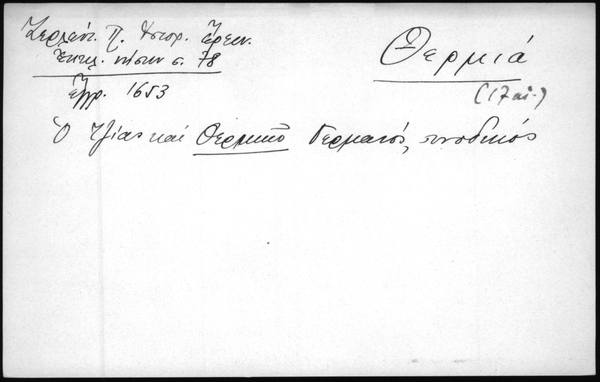 Ζερλέντ. Π. Ἱστορ. Ἔρευν.
Ἐκκλ. νήσων σ. 78
Ἔγγρ. 1653
Θερμιά
(17 αἰ.)
Ὁ Τζίας καὶ Θερμιῶ Γερμανός, συνοδικός